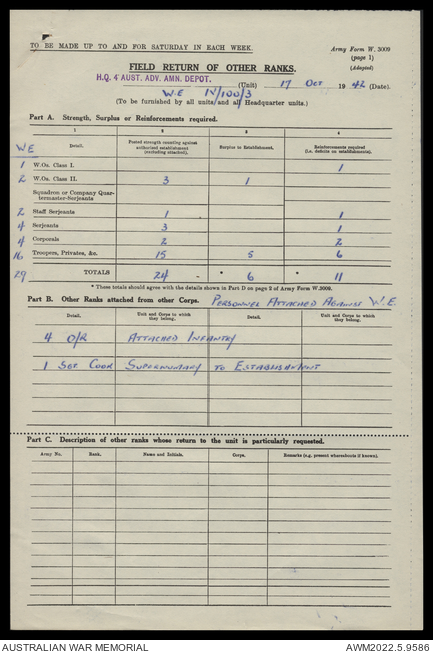 TO BE MADE UP TO AND FOR SATURDAY IN EACH WEEK.
Army Form W. 3009
(page 1)
(Adapted)
FIELD RETURN OF OTHER RANKS.
H.Q. 4 AUST. ADV. AMN. DEPOT. (Unit) 17 Oct 1942 (Date).
W.E IV/100/3
(To be furnished by all units and all Headquarter units.)
Part A. Strength, Surplus or Reinforcements required.
1 2 3 4
WE Detail. Posted strength counting against authorized establishment (excluding attached). Surplus to Establishment. Reinforcements required (i.e. deficits on establishments).
1 W.Os. Class I. 1
2 W.Os. Class II. 3 1
Squadron or Company Quar-
termaster-Serjeants
2 Staff Serjeants 1 1
4 Serjeants 3 1
4 Corporals 2 2
16 Troopers, Privates, &c. 15 5 6
29 TOTALS 24 - * 6 * 11
* These totals should agree with the details shown in Part D on page 2 of Army Form W.3009.
Part B. Other Ranks attached from other Corps. PERSONNEL ATTACHED AGAINST W.E.
Detail. Unit and Corps to which they belong. Detail. Unit and Corps to which they belong.
4 O/R ATTACHED INFANTRY
1 SGT COOK SUPERNUMARY TO ESTABLISHMENT
Part C. Description of other ranks whose return to the unit is particularly requested.
Army No. Rank. Name and Initials. Corps. Remarks (e.g. present whereabouts if known).
AUSTRALIAN WAR MEMORIAL
AWM2022.5.9586